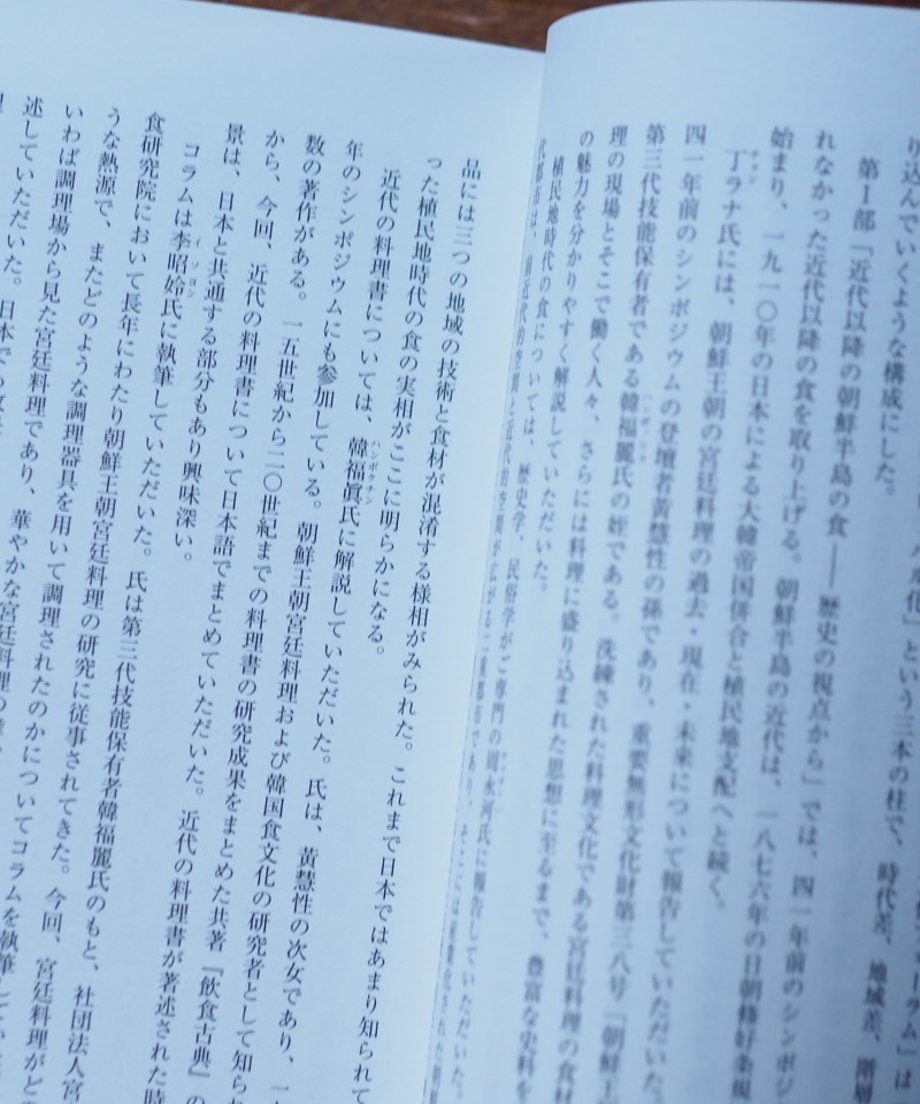 り込んでいくような構成にした。
第Ⅰ部「近代以降の朝鮮半島の食――歴史の視点から」では、四一年前のシンポジ
れなかった近代以降の食を取り上げる。朝鮮半島の近代は、一八七六年の日朝修好条規
始まり、一九一〇年の日本による大韓帝国併合と植民地支配へと続く。
丁ラナ氏には、朝鮮王朝の宮廷料理の過去・現在・未来について報告していただいた
四一年前のシンポジウムの登壇者黄慧性の孫であり、重要無形文化財第三八号「朝鮮王
第三代技能保有者である韓福麗氏の姪である。洗練された料理文化である宮廷料理の食材
理の現場とそこで働く人々、さらには料理に盛り込まれた思想に至るまで、豊富な史料を
の魅力を分かりやすく解説していただいた。
植民地時代の食については、歴史学、民俗学がご専門の周永河氏に報告していただいた。
代都市は、前近代的空間と近代的空間が広がる二重都市であり、そこには
品には三つの地域の技術と食材が混淆する様相がみられた。これまで日本ではあまり知られて
った植民地時代の食の実相がここに明らかになる。
近代の料理書については、韓福眞氏に解説していただいた。氏は、黄慧性の次女であり、
年のシンポジウムにも参加している。朝鮮王朝宮廷料理および韓国食文化の研究者として知られ
数の著作がある。一五世紀から二〇世紀までの料理書の研究成果をまとめた共著『飲食古典』の
から、今回、近代の料理書について日本語でまとめていただいた。近代の料理書が著述された時
景は、日本と共通する部分もあり興味深い。
コラムは李昭姈氏に執筆していただいた。氏は第三代技能保有者韓福麗氏のもと、社団法人宮
食研究院において長年にわたり朝鮮王朝宮廷料理の研究に従事されてきた。今回、宮廷料理がど
うな熱源で、またどのような調理器具を用いて調理されたのかについてコラムを執筆
いわば調理場から見た宮廷料理であり、華やかな宮廷料理の
述していただいた。日本でも